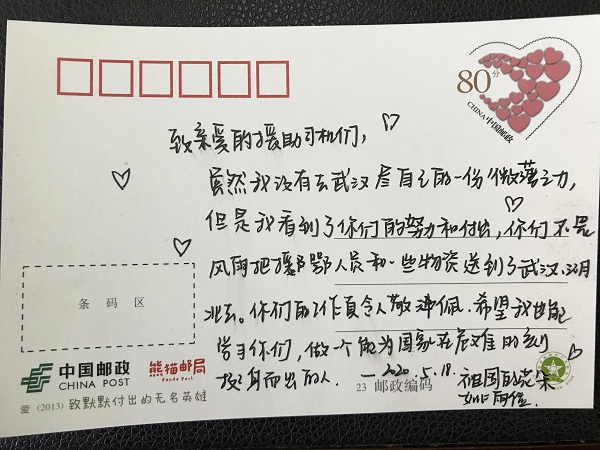 80分
CHINA 中国邮政
致亲爱的援助司机们,
虽然我没有去武汉尽自己的一份微薄之力,
但是我看到了你们的努力和付出,你们不畏
风雨把援鄂人员和一些物资送到了武汉、
北去。你们的工作真令人敬佩。希望我也能
学习你们,做一个能为国家在危难时刻
挺身而出的人.
—2020.5.18.
祖国的花朵
条码区
中国邮政
CHINA POST
熊猫邮局
Panda Post
23 邮政编码
爱 (2013) 致默默付出的无名英雄